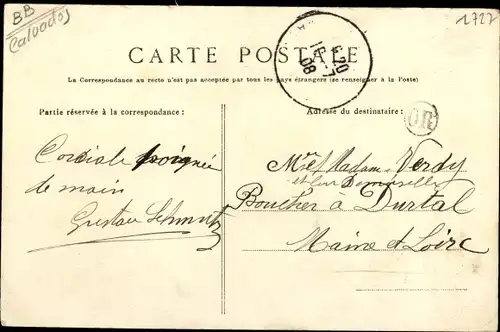 BB
Calvados
1727
CARTE POSTALE
La Correspondance au recto n'est pas acceptée par tous les pays étrangers (se renseigner à la Poste)
20
08
Partie réservée à la correspondance :
Cordiale poignée
de main
Gustave Schmutz
Adresse du destinataire :
OR
Mr et Madame Verdy
et leur Demoiselle
Boucher a Durtal
Maine et Loire